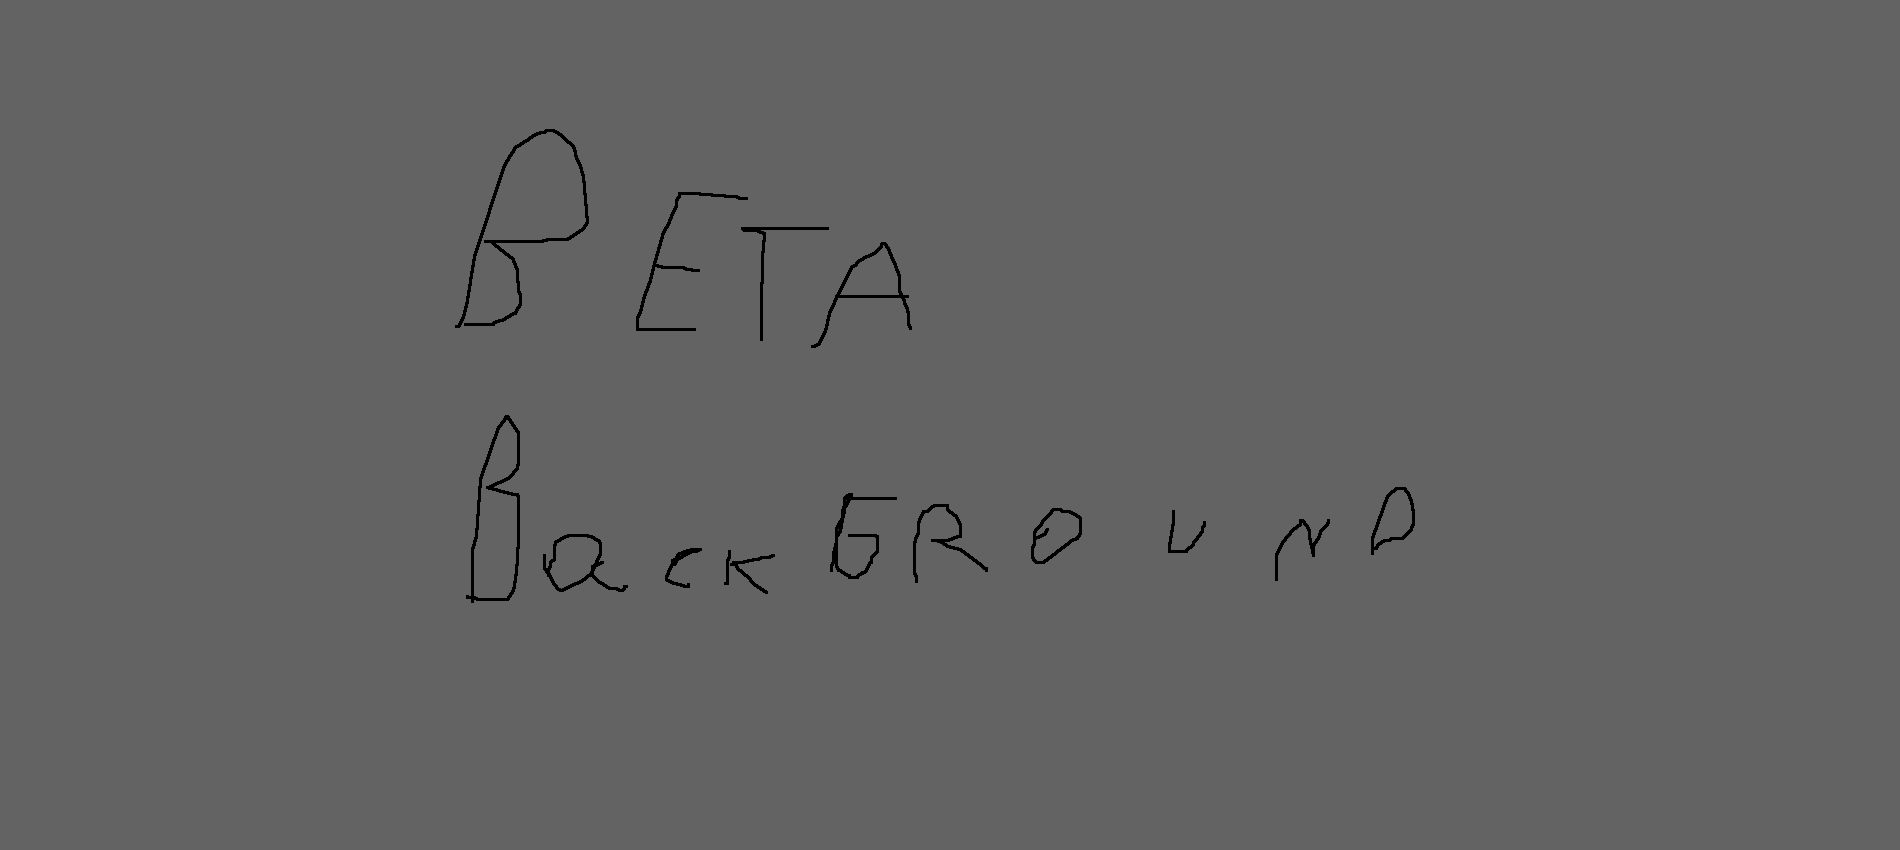 BETA
BacKGROUND